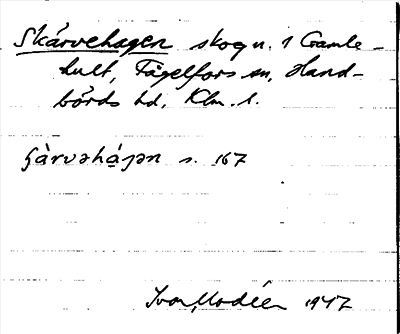 Skärvehagen skog u. 1 Gamle-
hult, Fågelfors sn, Hand-
börds hd, Klm. l.
s. 167
Ivar Modéer 1947